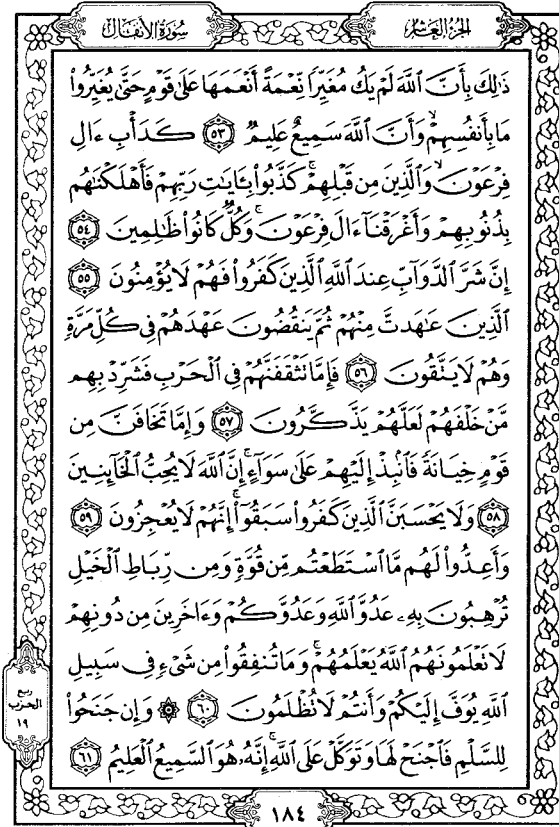 الجزء العاشر
سورة الأنفال
ذَٰلِكَ بِأَنَّ ٱللَّهَ لَمْ يَكُ مُغَيِّرًا نِّعْمَةً أَنْعَمَهَا عَلَىٰ قَوْمٍ حَتَّىٰ يُغَيِّرُوا۟
مَا بِأَنفُسِهِمْ ۙ وَأَنَّ ٱللَّهَ سَمِيعٌ عَلِيمٌ ﴿٥٣﴾ كَدَأْبِ ءَالِ
فِرْعَوْنَ ۙ وَٱلَّذِينَ مِن قَبْلِهِمْ ۚ كَذَّبُوا۟ بِـَٔايَٰتِ رَبِّهِمْ فَأَهْلَكْنَٰهُم
بِذُنُوبِهِمْ وَأَغْرَقْنَآ ءَالَ فِرْعَوْنَ ۚ وَكُلٌّ كَانُوا۟ ظَٰلِمِينَ ﴿٥٤﴾
إِنَّ شَرَّ ٱلدَّوَآبِّ عِندَ ٱللَّهِ ٱلَّذِينَ كَفَرُوا۟ فَهُمْ لَا يُؤْمِنُونَ ﴿٥٥﴾
ٱلَّذِينَ عَٰهَدتَّ مِنْهُمْ ثُمَّ يَنقُضُونَ عَهْدَهُمْ فِى كُلِّ مَرَّةٍ
وَهُمْ لَا يَتَّقُونَ ﴿٥٦﴾ فَإِمَّا تَثْقَفَنَّهُمْ فِى ٱلْحَرْبِ فَشَرِّدْ بِهِم
مَّنْ خَلْفَهُمْ لَعَلَّهُمْ يَذَّكَّرُونَ ﴿٥٧﴾ وَإِمَّا تَخَافَنَّ مِن
قَوْمٍ خِيَانَةً فَٱنۢبِذْ إِلَيْهِمْ عَلَىٰ سَوَآءٍ ۚ إِنَّ ٱللَّهَ لَا يُحِبُّ ٱلْخَآئِنِينَ
﴿٥٨﴾ وَلَا يَحْسَبَنَّ ٱلَّذِينَ كَفَرُوا۟ سَبَقُوٓا۟ ۚ إِنَّهُمْ لَا يُعْجِزُونَ ﴿٥٩﴾
وَأَعِدُّوا۟ لَهُم مَّا ٱسْتَطَعْتُم مِّن قُوَّةٍ وَمِن رِّبَاطِ ٱلْخَيْلِ
تُرْهِبُونَ بِهِۦ عَدُوَّ ٱللَّهِ وَعَدُوَّكُمْ وَءَاخَرِينَ مِن دُونِهِمْ
لَا تَعْلَمُونَهُمُ ٱللَّهُ يَعْلَمُهُمْ ۚ وَمَا تُنفِقُوا۟ مِن شَىْءٍ فِى سَبِيلِ
ٱللَّهِ يُوَفَّ إِلَيْكُمْ وَأَنتُمْ لَا تُظْلَمُونَ ﴿٦٠﴾ ۞ وَإِن جَنَحُوا۟
لِلسَّلْمِ فَٱجْنَحْ لَهَا وَتَوَكَّلْ عَلَى ٱللَّهِ ۚ إِنَّهُۥ هُوَ ٱلسَّمِيعُ ٱلْعَلِيمُ ﴿٦١﴾
ربع
الحزب
١٩
١٨٤